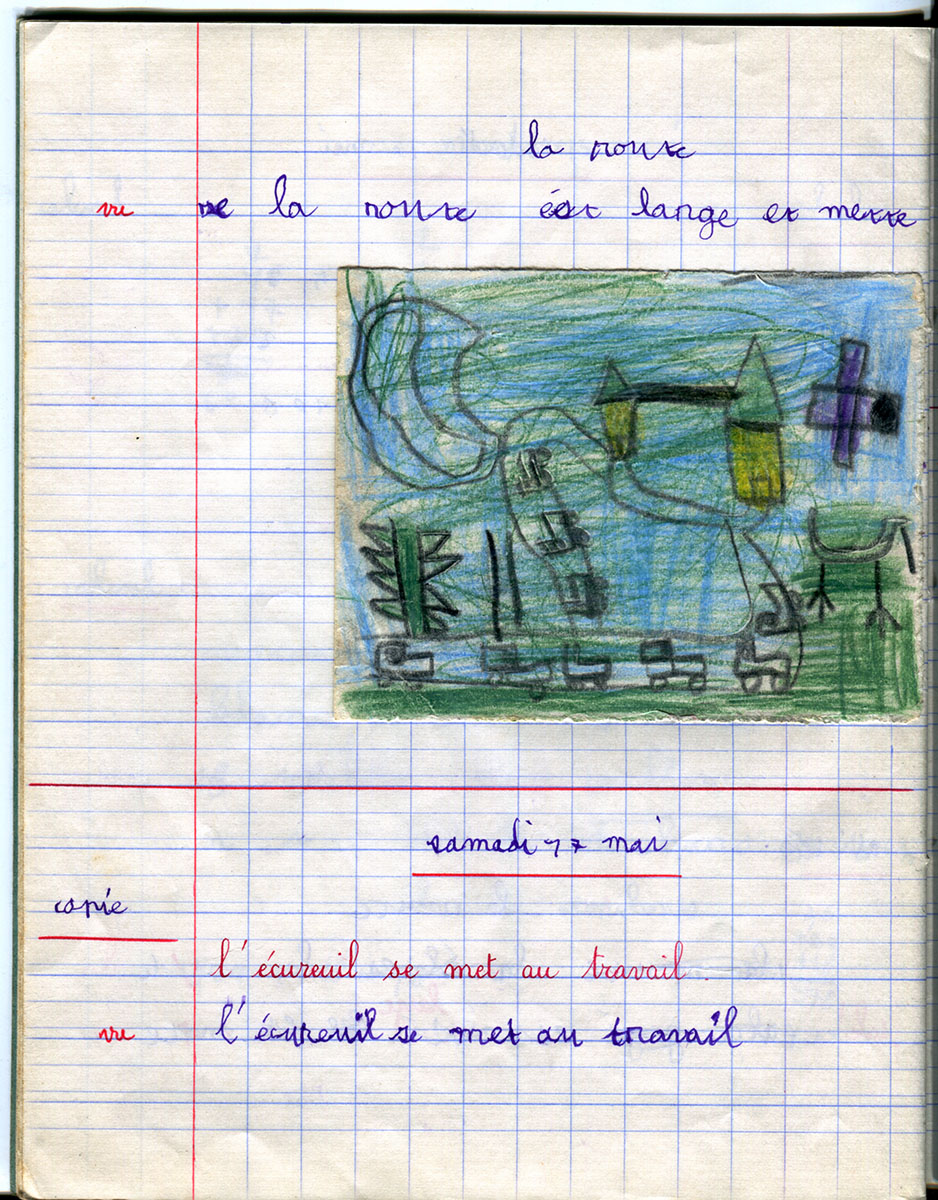 la route
vu la route ést lange et nette
samadi 17 mai
copie
l'écureuil se met au travail.
vu l'écureuil se met au travail